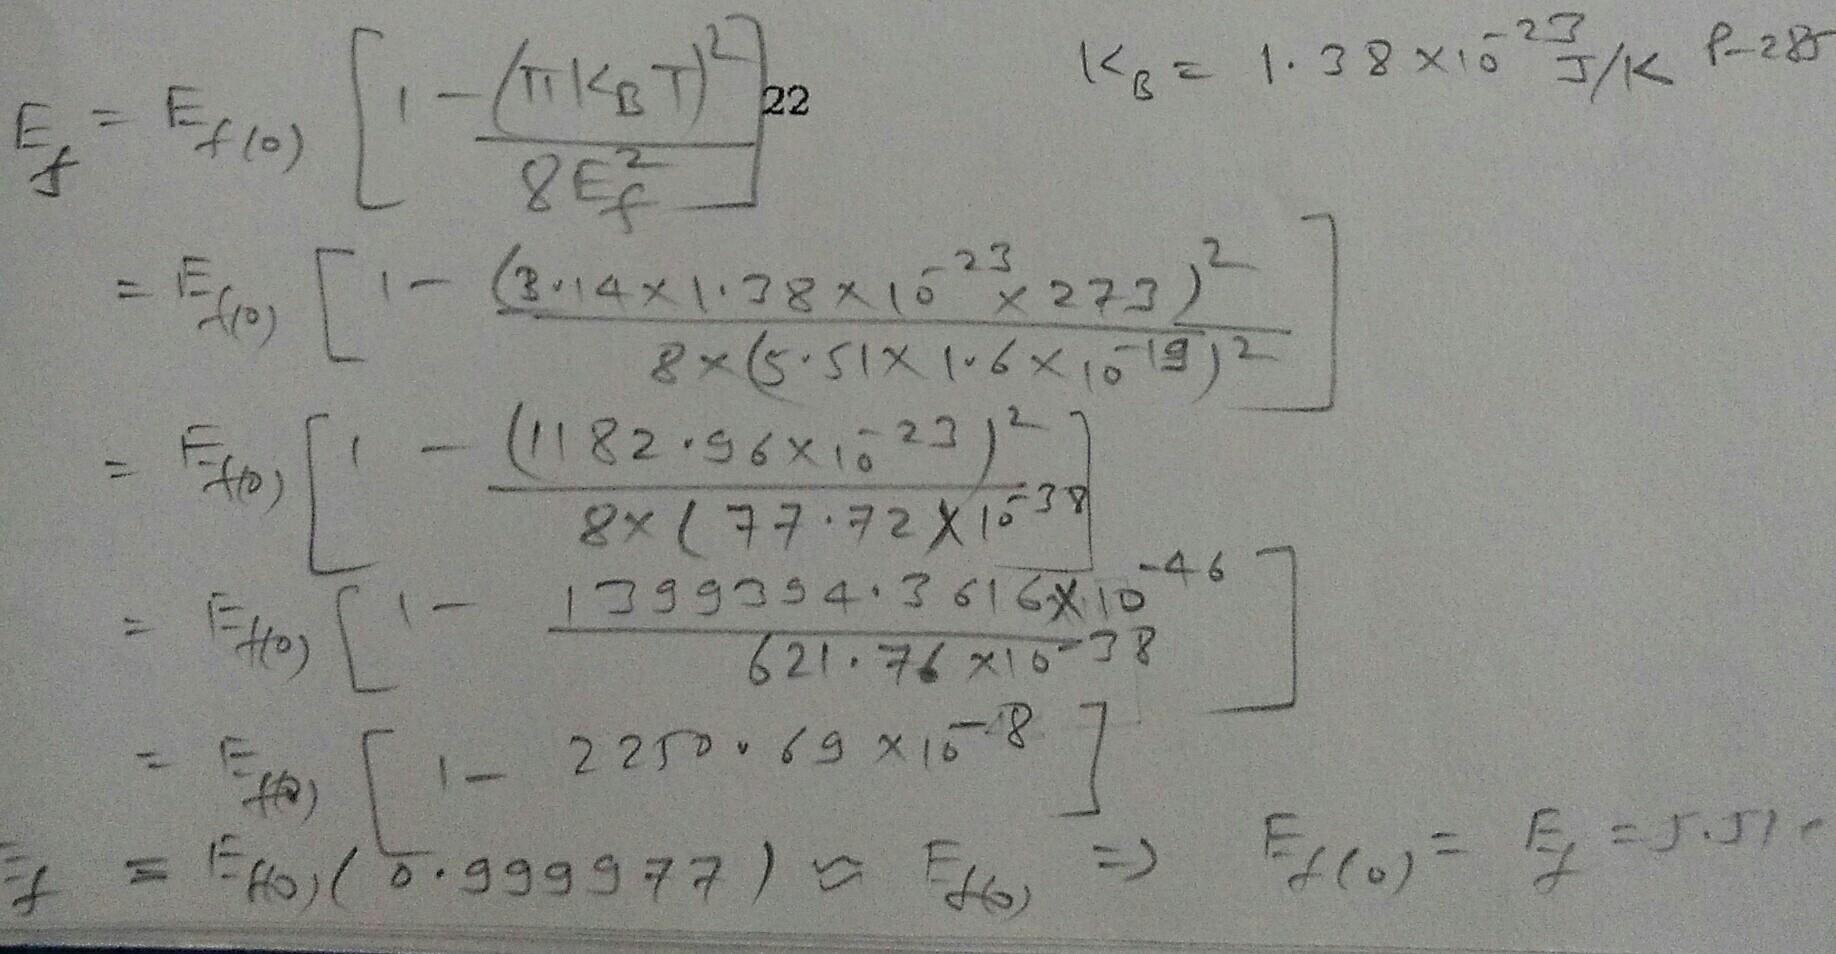 E_f = E_f(0) [ 1 - (π K_B T)^2 / 8 E_f^2 ] 22
K_B = 1.38 × 10^-23 J/K P-285
= E_f(0) [ 1 - (3.14 × 1.38 × 10^-23 × 273)^2 / 8 × (5.51 × 1.6 × 10^-19)^2 ]
= E_f(0) [ 1 - (1182.96 × 10^-23)^2 / 8 × (77.72 × 10^-38 ]
= E_f(0) [ 1 - 1399394.3616 × 10^-46 / 621.76 × 10^-38 ]
= E_f(0) [ 1 - 2250.69 × 10^-8 ]
E_f = E_f(0) (0.999977) ≈ E_f(0) => E_f(0) = E_f = 5.51